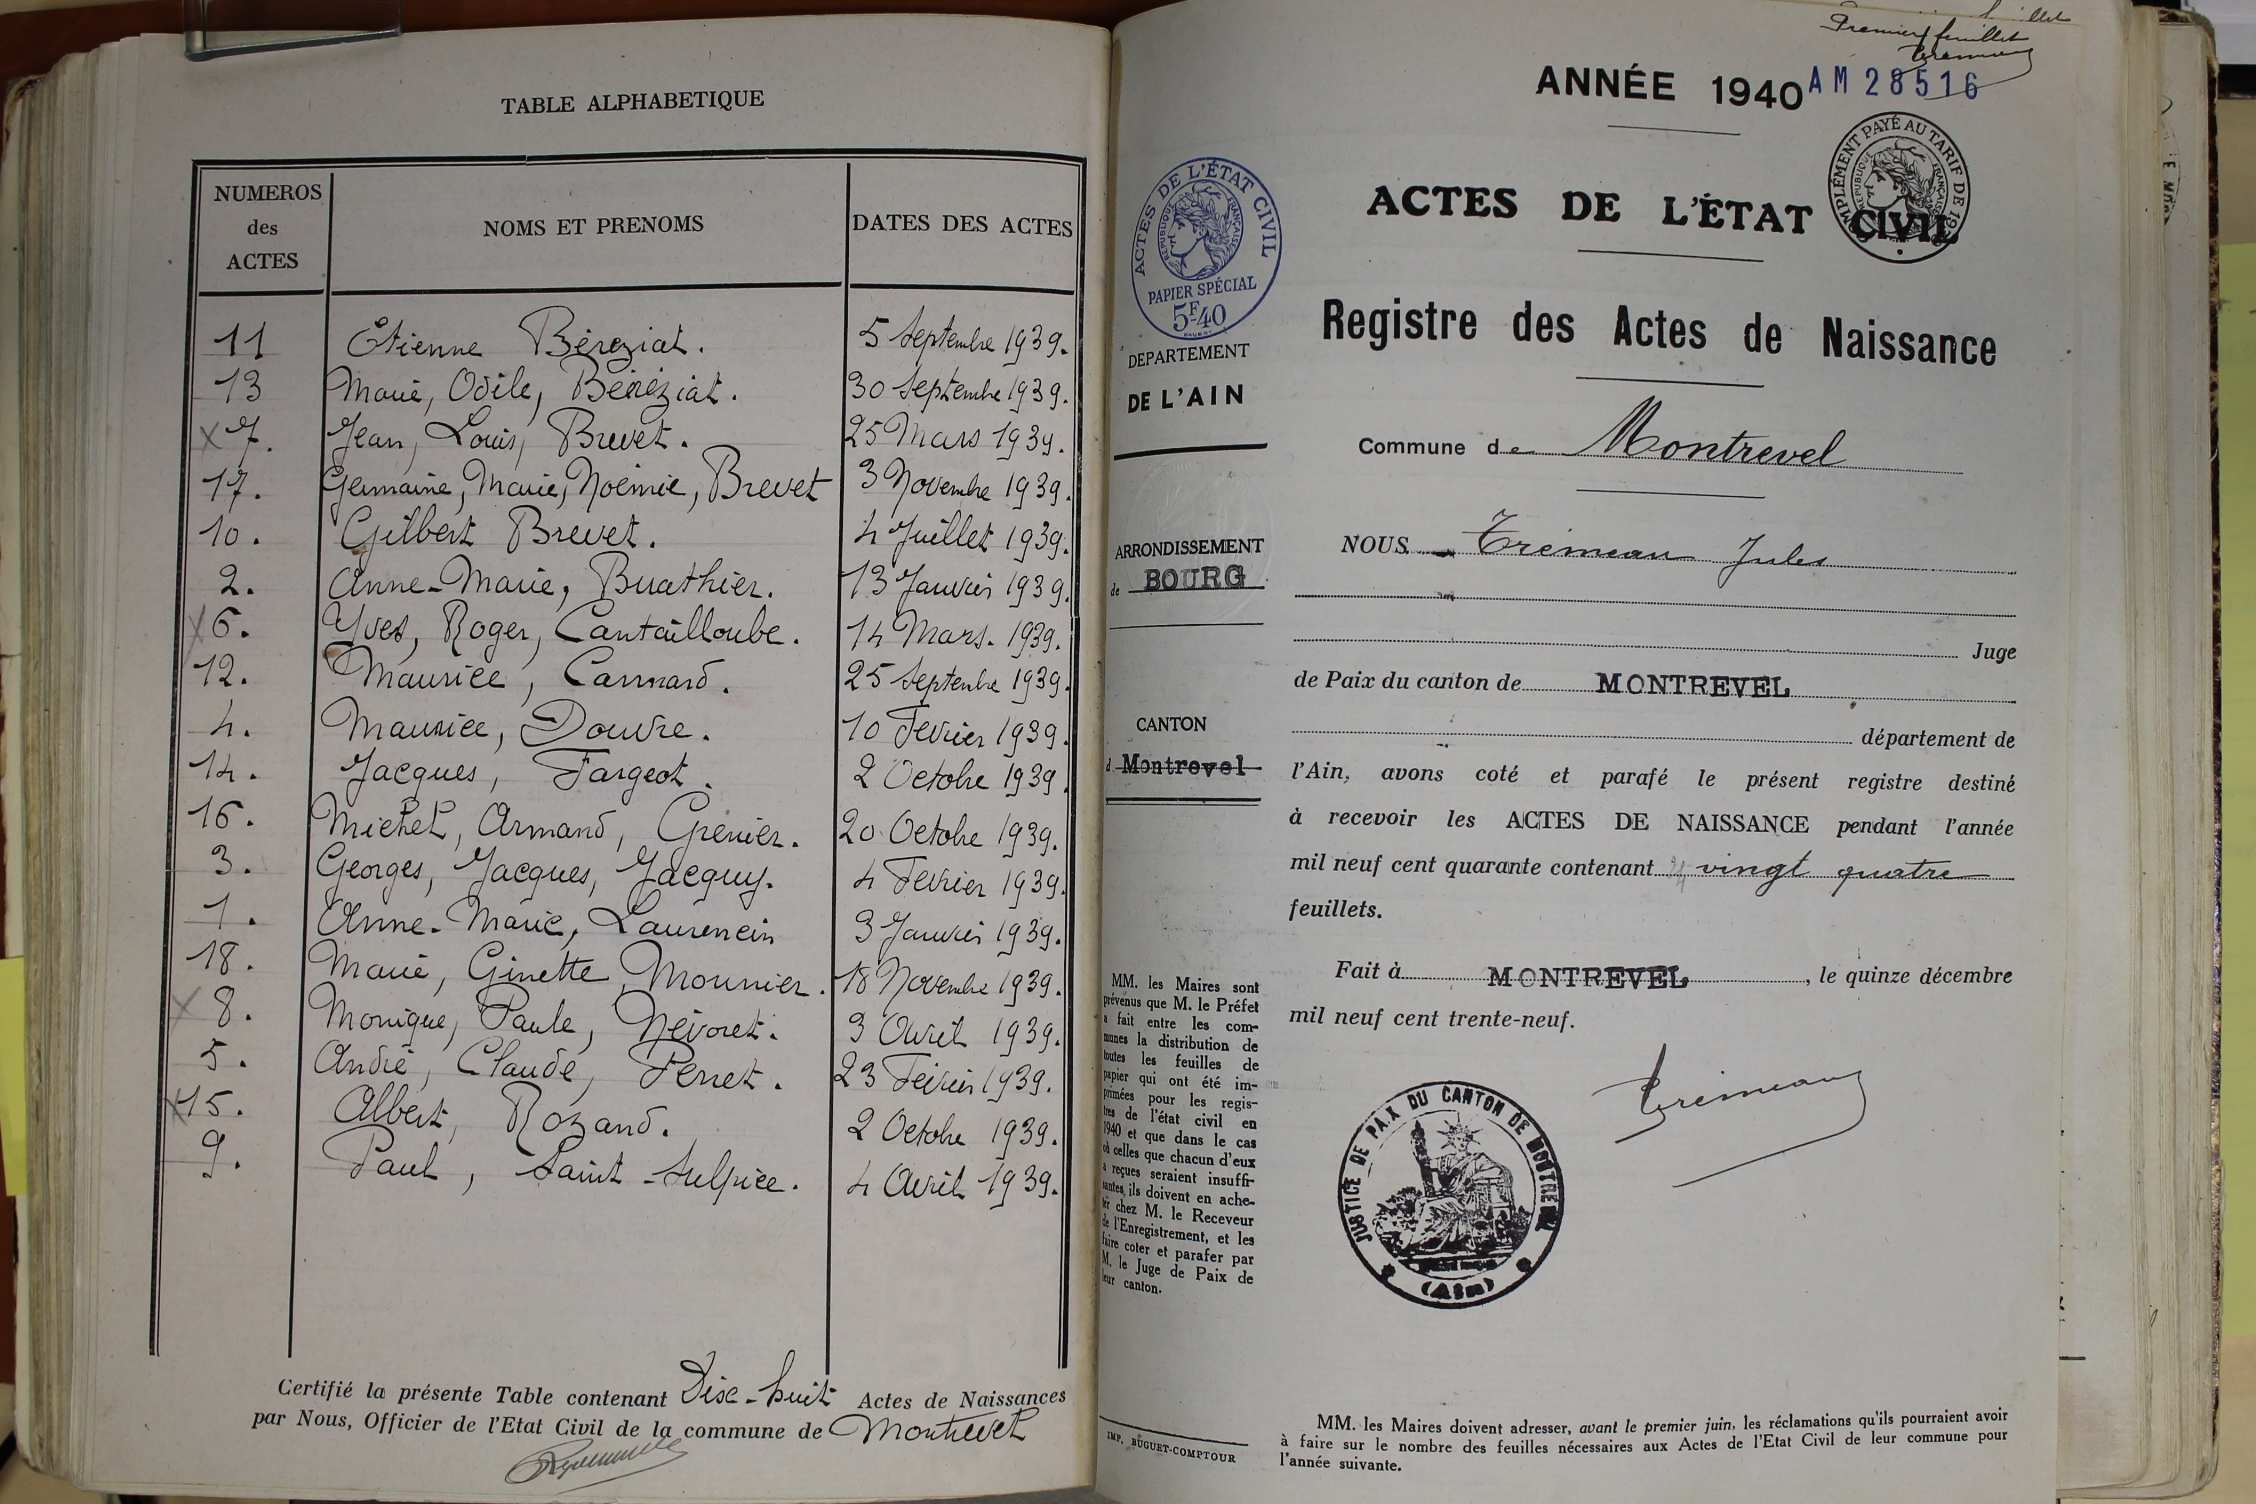 TABLE ALPHABETIQUE
NUMEROS des ACTES
NOMS ET PRENOMS
DATES DES ACTES
11 Etienne Béréziat. 5 Septembre 1939.
13 Marie, Odile, Béréziat. 30 Septembre 1939.
x 7. Jean, Louis, Brevet. 25 Mars 1939.
17. Germaine, Marie, Noémie, Brevet 3 Novembre 1939.
10. Gilbert Brevet. 4 Juillet 1939.
2. Anne-Marie, Buathier. 13 Janvier 1939.
x 6. Yves, Roger, Cantailloube. 14 Mars. 1939.
12. Maurice, Cannard. 25 Septembre 1939.
4. Maurice, Douvre. 10 Fevrier 1939.
14. Jacques, Fargeot. 2 Octobre 1939.
16. Michel, Armand, Grenier. 20 Octobre 1939.
3. Georges, Jacques, Jacquy. 4 Fevrier 1939.
1. Anne-Marie, Laurencin 3 Janvier 1939.
18. Marie, Ginette, Mounier. 18 Novembre 1939.
x 8. Monique, Paule, Névoret. 3 Avril 1939.
5. André, Claude, Perret. 23 Février 1939.
x 15. Albert, Rozand. 2 Octobre 1939.
9. Paul, Saint-Sulpice. 4 Avril 1939.
Certifié la présente Table contenant Dix-huit Actes de Naissances
par Nous, Officier de l'Etat Civil de la commune de Montrevel
Premier feuillet
Trémeau
ANNÉE 1940 AM 28516
COMPLÉMENT PAYÉ AU TARIF DE
RÉPUBLIQUE FRANÇAISE
ACTES DE L'ÉTAT CIVIL
ACTES DE L'ÉTAT CIVIL
RÉPUBLIQUE FRANÇAISE
PAPIER SPÉCIAL
5F40
Registre des Actes de Naissance
DEPARTEMENT
DE L'AIN
Commune de Montrevel
ARRONDISSEMENT
de BOURG
CANTON
d Montrevel
NOUS Trémeau Jules
Juge
de Paix du canton de MONTREVEL
département de
l'Ain, avons coté et parafé le présent registre destiné
à recevoir les ACTES DE NAISSANCE pendant l'année
mil neuf cent quarante contenant vingt quatre
feuillets.
Fait à MONTREVEL, le quinze décembre
mil neuf cent trente-neuf.
Trémeau
JUSTICE DE PAIX DU CANTON DE MONTREVEL
(Ain)
MM. les Maires sont
prévenus que M. le Préfet
a fait entre les com-
munes la distribution de
toutes les feuilles de
papier qui ont été im-
primées pour les regis-
tres de l'état civil en
1940 et que dans le cas
où celles que chacun d'eux
a reçues seraient insuffi-
santes, ils doivent en ache-
ter chez M. le Receveur
de l'Enregistrement, et les
faire coter et parafer par
M. le Juge de Paix de
leur canton.
IMP. BUGUET-COMPTOUR
MM. les Maires doivent adresser, avant le premier juin, les réclamations qu'ils pourraient avoir
à faire sur le nombre des feuilles nécessaires aux Actes de l'Etat Civil de leur commune pour
l'année suivante.